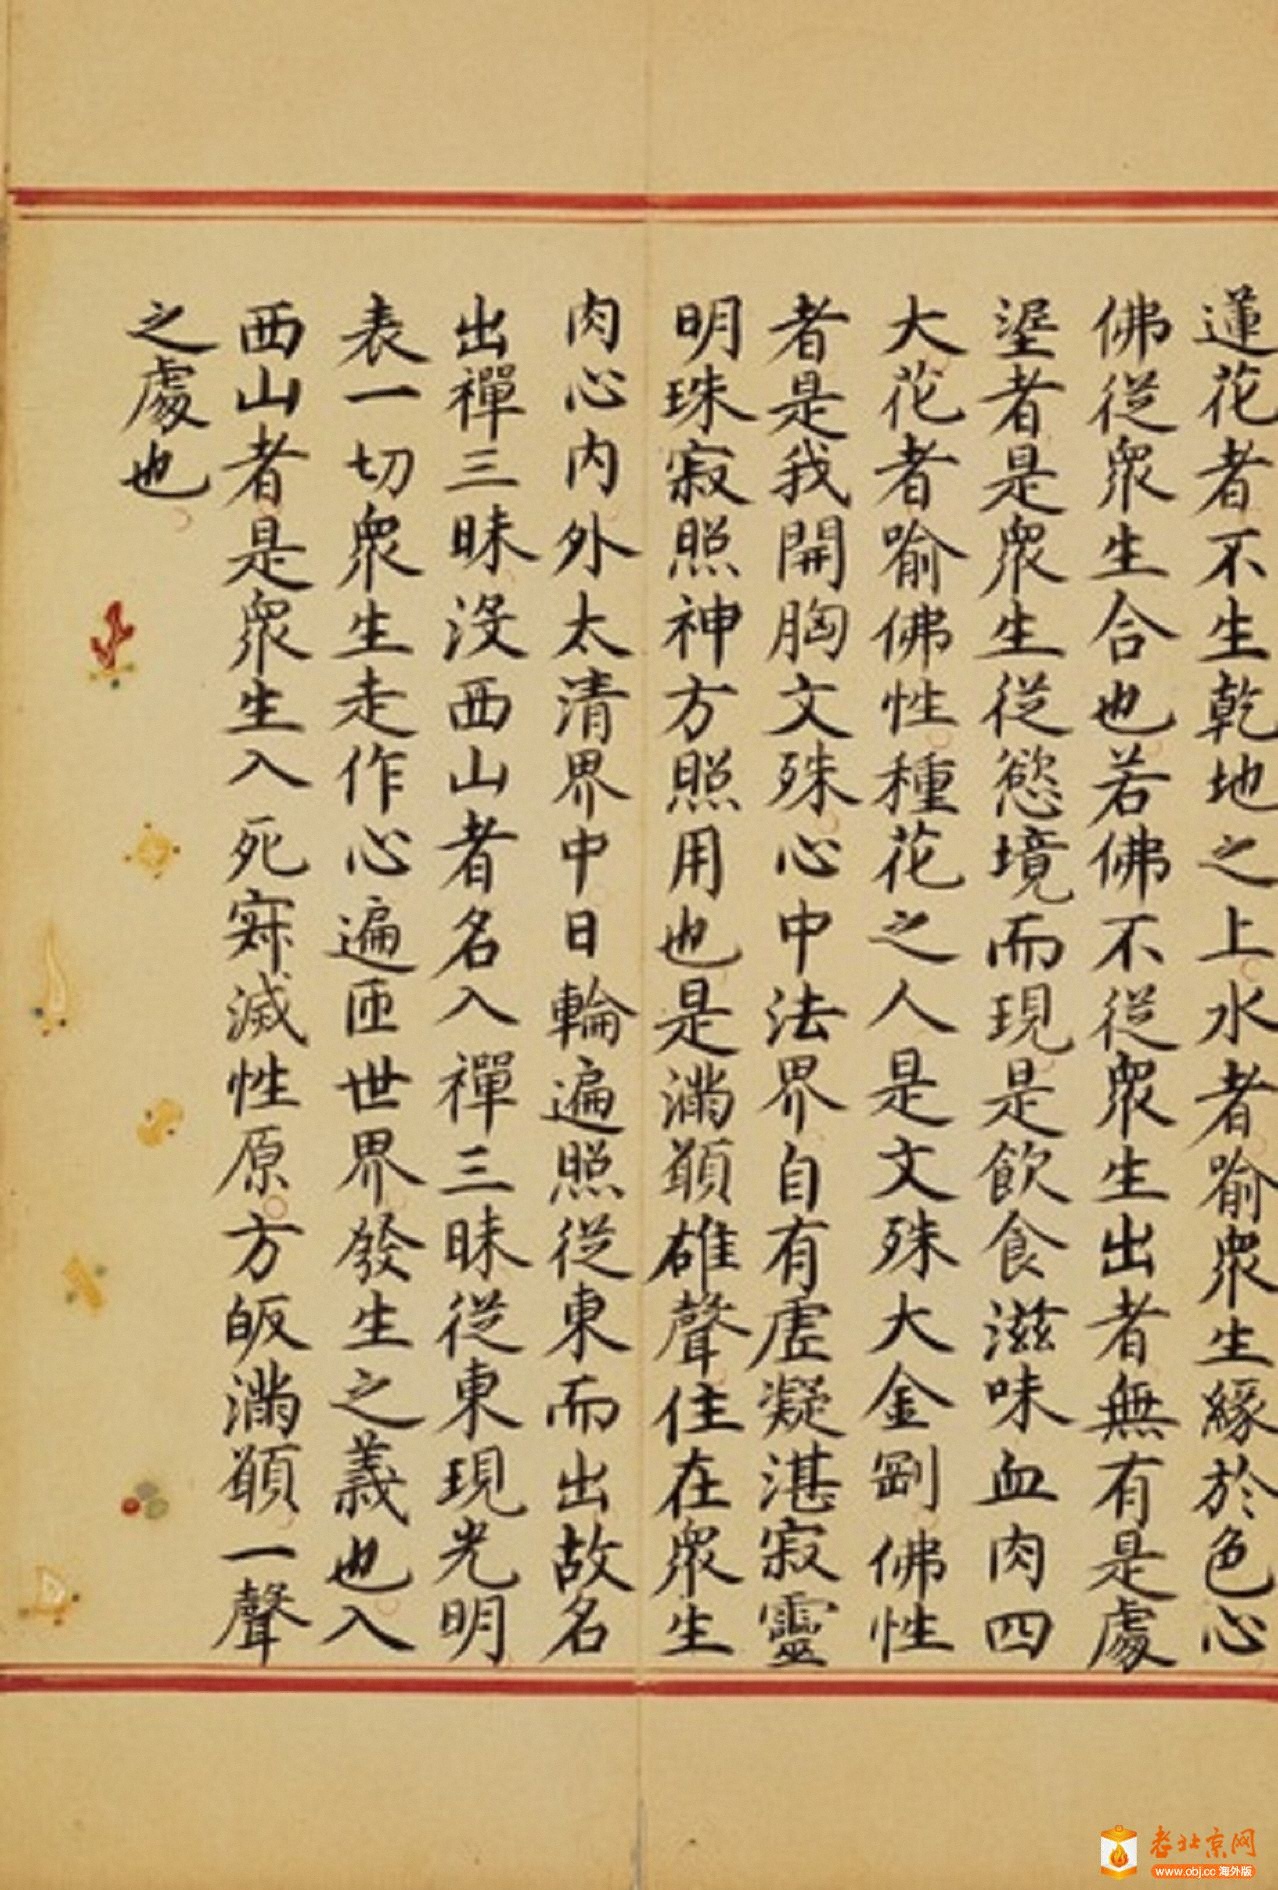 蓮花者不生乾地之上水者喻衆生緣於色心
佛從衆生合也若佛不從衆生出者無有是處
埿者是衆生從慾境而現是飲食滋味血肉四
大花者喻佛性種花之人是文殊大金剛佛性
者是我開胸文殊心中法界自有虗凝湛寂靈
明珠寂照神方照用也是滿頋雄聲住在衆生
肉心內外太清界中日輪遍照從東而出故名
出禪三昧沒西山者名入禪三昧從東現光明
表一切衆生走作心遍匝世界發生之義也入
西山者是衆生入死寂滅性原方皈滿頋一聲
之處也
老北京网
www.obj.cc 海外版